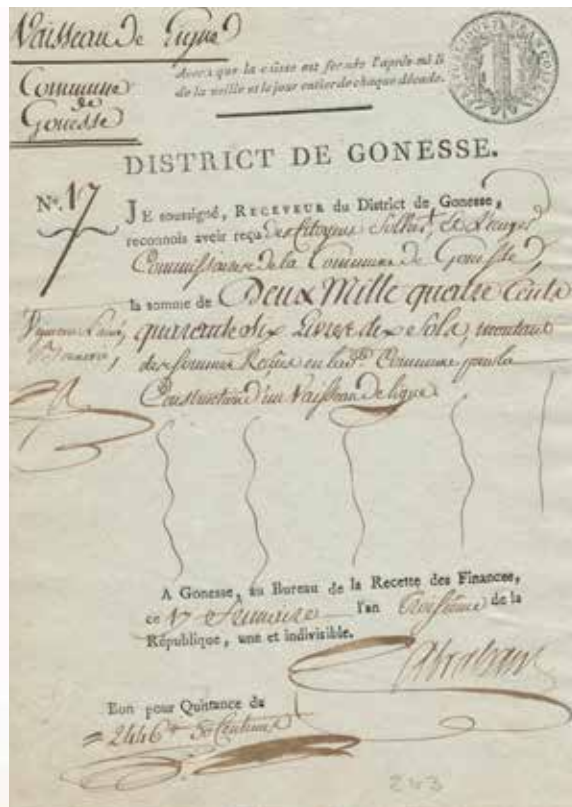 Vaisseau de Ligne
Commune
de
Gonesse
Avers que la caisse est fermée l'après-midi
de la veille et le jour entier de chaque décade.
DISTRICT DE GONESSE.
N°. 17
JE soussigné, RECEVEUR du District de Gonesse,
reconnois avoir reçu des Citoyens
Commissaires de la Commune de Gonesse
la somme de Deux Mille quatre Cents
quarante six Livres dix Sols, montant
des sommes Reçues en lad. Commune pour la
Construction d'un Vaisseau de ligne
A Gonesse, au Bureau de la Recette des Finances,
ce l'an troisième de la
République, une et indivisible.
Abraham
Bon pour Quittance de
= 2446 50 Centimes
243